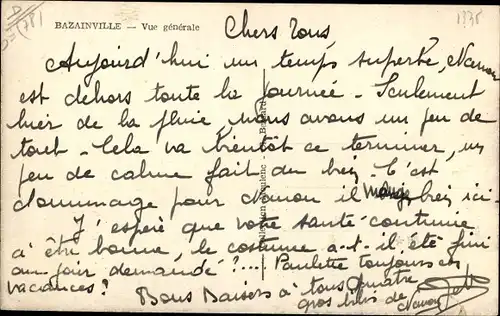 BAZAINVILLE — Vue générale
1378
Chers Tous
Aujourd'hui un temps superbe, Nanou
est dehors toute la journée - Seulement
hier de la pluie, nous avons un peu de
tout - Cela va bientôt ce terminer, un
peu de calme fait du bien - C'est
dommage pour Nanou il mange bien ici -
J'espère que votre santé continue
à être bonne, le costume a-t-il été fini
au jour demandé ?... Paulette toujours en
vacances ?
Bons Baisers à tous quatre
gros bibis de
Nanou